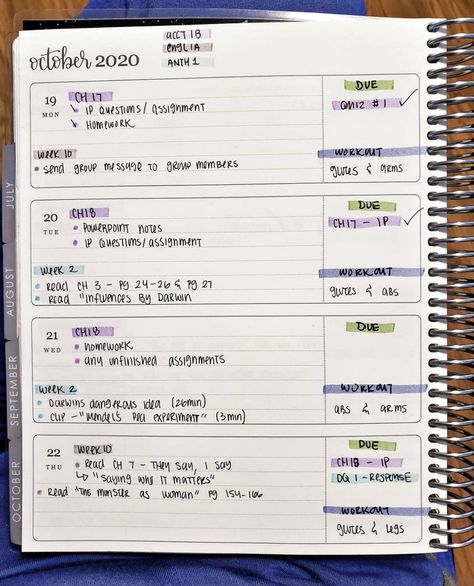 october 2020
ACCT 1B
ENGL 1A
ANTH 1
19
MON
CH 17
IP QUESTIONS/ASSIGNMENT
HOMEWORK
WEEK 10
SEND GROUP MESSAGE TO GROUP MEMBERS
DUE
QUIZ #1
WORKOUT
GLUTES & ARMS
20
TUE
CH18
POWERPOINT NOTES
IP QUESTIONS/ASSIGNMENT
WEEK 2
READ CH 3 - PG 24-26 & PG 27
READ "INFLUENCES BY DARWIN
DUE
CH17 - IP
WORKOUT
GLUTES & ABS
21
WED
CH18
HOMEWORK
ANY UNFINISHED ASSIGNMENTS
WEEK 2
DARWINS DANGEROUS IDEA (26MIN)
CLIP - "MENDEL'S PEA EXPERIMENT" (3MIN)
DUE
WORKOUT
ABS & ARMS
22
THU
WEEK 10
READ CH 7 - THEY SAY, I SAY
↳ "SAYING WHY IT MATTERS"
READ "THE MONSTER AS WOMAN" PG 154-166
DUE
CH18 - IP
DQ 1 - RESPONSE
WORKOUT
GLUTES & LEGS
JULY
AUGUST
SEPTEMBER
OCTOBER